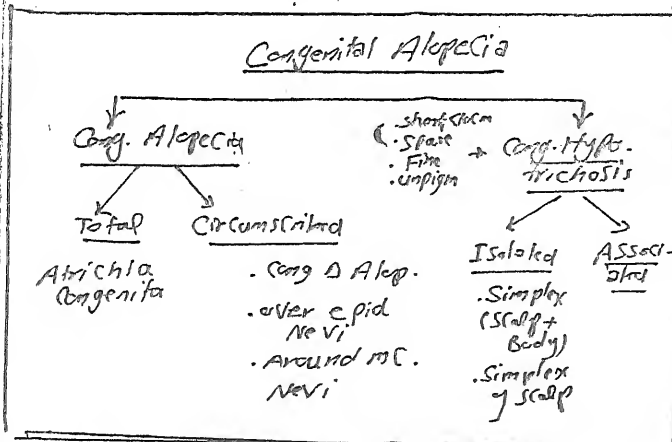 Congenital Alopecia
Cong. Alopecia
Total
Atrichia
Congenita
Circumscribed
. Cong Δ Alop.
. over epid
Nevi
. Around mC.
Nevi
. Spare
. Fine
. unpigm
Cong. Hypo.
trichosis
Isolated
. Simplex
(Scalp +
Body)
. Simplex
y Scalp
Associ-
ated